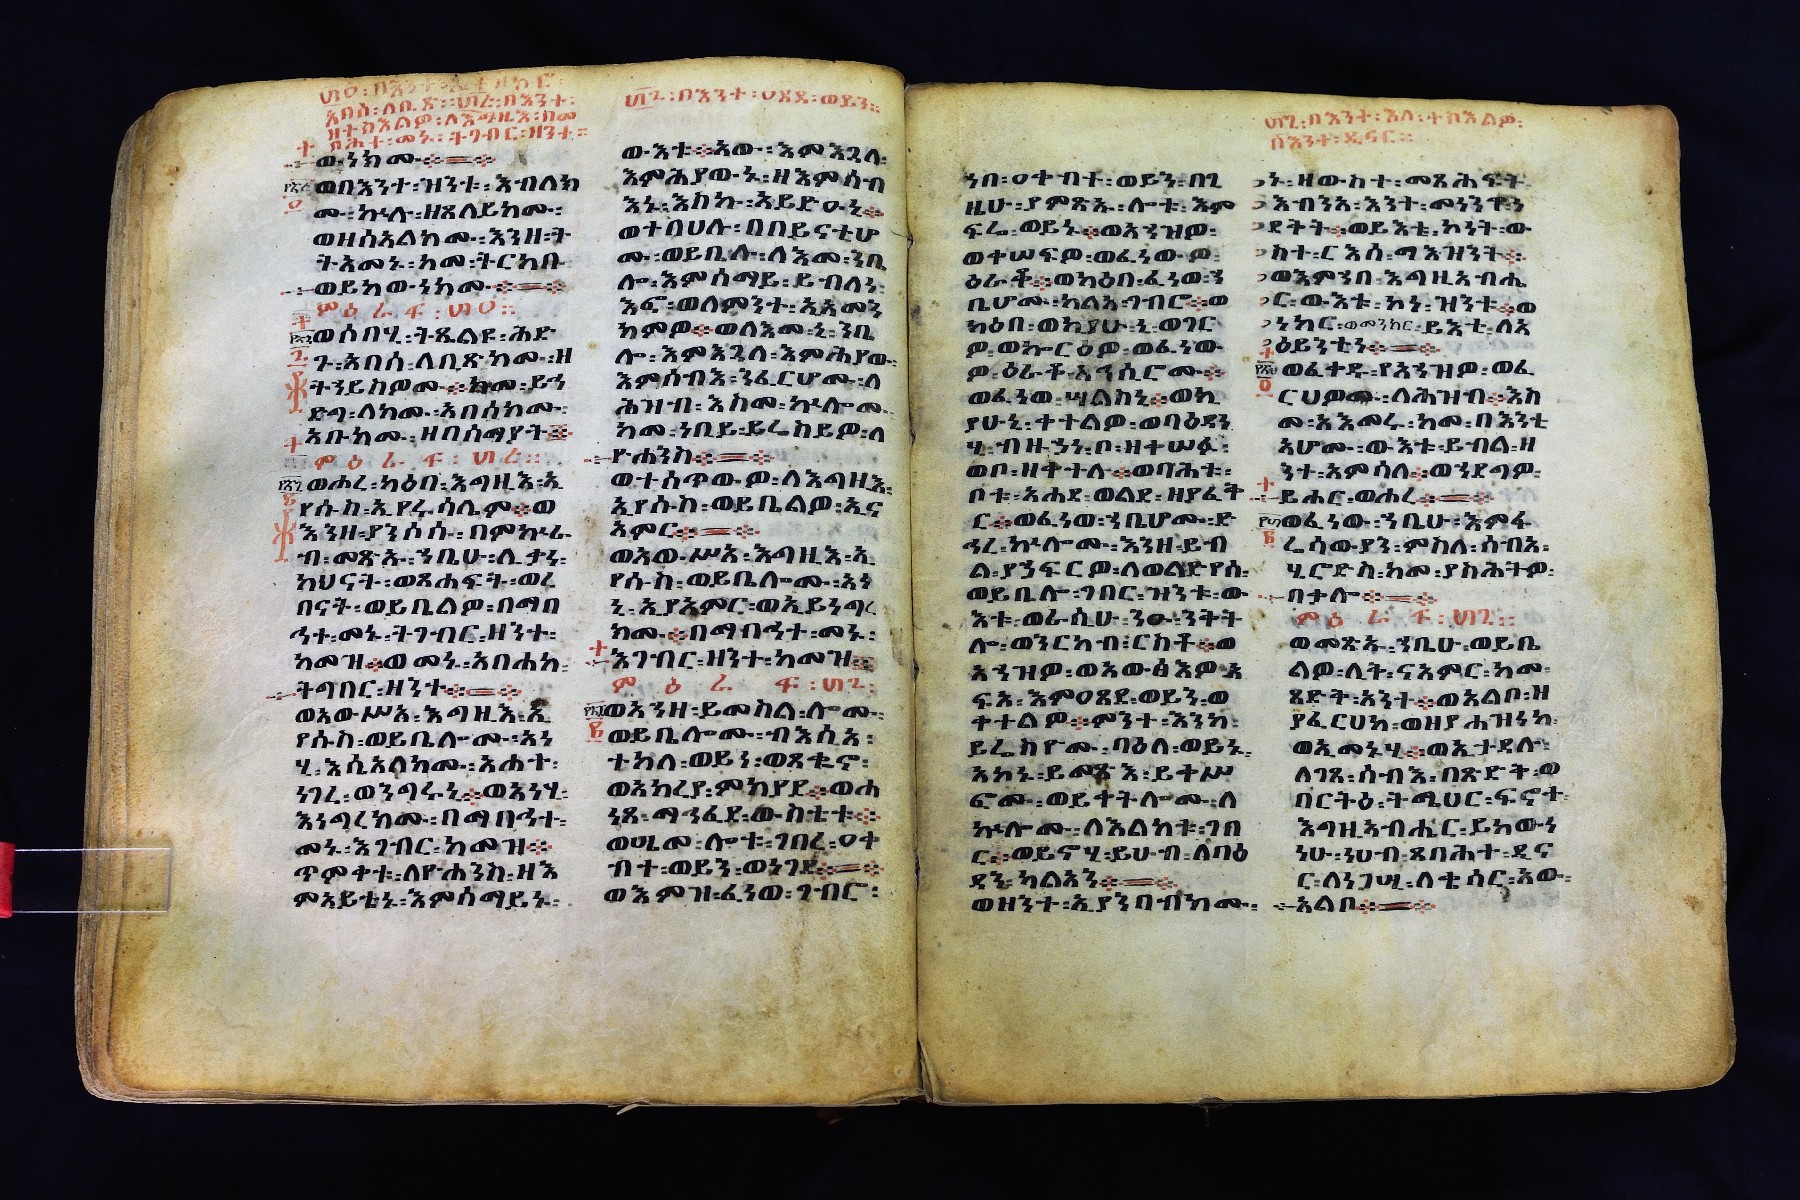 አበሰ፡ለቢጽ፡
ወኑንክሙ
ወበእንተ፡ዝንቱ፡እብለክ
ሙ፡ኵሉ፡ዘጸለይክሙ፡
ወዘሰአልክሙ፡እንዘ፡ት
ትአመኑ፡ከመ፡ትርከቡ
ወይከውነክሙ፡
ምዕራፍ፡
ወሶበሂ፡ትጼልዩ፡ሕድ
ጉ፡አበሳ፡ለቢጽክሙ፡ዘ
ትንይክዎሙ፡ከመ፡ይን
ድግ፡ለክሙ፡አበሳክሙ፡
አቡክሙ፡ዘበሰማያት
ምዕራፍ፡
ወሖረ፡ካዕበ፡እግዚእ፡ኢ
የሱስ፡ኢየሩሳሌም፡ወ
እንዘ፡ያንሶሱ፡በምኵራ
ብ፡መጽኡ፡ኀቤሁ፡ሊቃነ፡
ካህናት፡ወጸሐፍት፡ወረ
በናት፡ወይቤልዎ፡በማበ
ኅተ፡መኑ፡ትገብር፡ዘንተ፡
ከመዝ፡ወመኑ፡አብሐከ፡
ትግበር፡ዘንተ
ወአውሥአ፡እግዚእ፡ኢ
የሱስ፡ወይቤሎሙ፡አነ
ሂ፡እሴአለክሙ፡አሐተ፡
ነገረ፡ወንግሩኒ፡ወአነሂ፡
እነግረክሙ፡በማበኅተ፡
መኑ፡እገብር፡ከመዝ
ጥምቀቱ፡ለዮሐንስ፡ዘእ
ምአይቴኑ፡እምሰማይኑ፡
በእንተ፡ዐጸደ፡ወይን፡
ውእቱ፡አው፡እምእጓለ፡
እምሕያውኑ፡ዘእምሰብ
እኑ፡እስኩ፡አይድዑኒ
ወተበሀሉ፡በበይናቲሆ
ሙ፡ወይቤሉ፡ለእመ፡ንቤ
ሎ፡እምሰማይ፡ይብለነ፡
እፎ፡ወለምንት፡ኢአመን
ክምዎ፡ወለእመ፡ኒ፡ንቤ
ሎ፡እምእጓለ፡እምሕያው፡
እምሰብእ፡ንፈርሆሙ፡ለ
ሕዝብ፡እስመ፡ኵሎሙ፡
ከመ፡ነቢይ፡ይሬስይዎ፡ለ
ዮሐንስ
ወተሰጥውዎ፡ለእግዚእ፡
ኢየሱስ፡ወይቤልዎ፡ኢና
አምር
ወአውሥአ፡እግዚእ፡ኢ
የሱስ፡ወይቤሎሙ፡አነ
ኒ፡ኢያአምር፡ወኢይነግረ
ክሙ፡በማበኅተ፡መኑ፡
እገብር፡ዘንተ፡ከመዝ
ምዕራፍ፡
ወእንዘ፡ይመስል፡ሎሙ፡
ወይቤሎሙ፡ብእሲአ፡
ተከለ፡ወይነ፡ወጸቈኖ፡
ወአከረየ፡ምክያደ፡ወሐ
ነጸ፡ማኅፈደ፡ውስቴቱ
ወሤመ፡ሎቱ፡ገበረ፡ዐቀ
ብተ፡ወይን፡ወነገደ
ወእምዝ፡ፈነወ፡ገብሮ፡
ኀበ፡ዐቀብተ፡ወይን፡በጊ
ዜሁ፡ያምጽኡ፡ሎቱ፡እም
ፍሬ፡ወይኑ፡ወአኀዝዎ፡
ወተሠፍዎ፡ወፈነውዎ፡
ዕራቆ፡ወካዕበ፡ፈነወ፡ኀ
ቤሆሙ፡ካልአ፡ገብሮ፡ወ
ካዕበ፡ወኪያሁኒ፡ወገር
ዎ፡ወኰርዕዎ፡ወፈነው
ዎ፡ዕራቆ፡አኅሲሮሙ፡
ወፈነወ፡ሣልስኒ፡ወኪ
ያሁኒ፡ቀተልዎ፡ወባዕዳነ
ሂ፡ብዙኃነ፡ቦ፡ዘተሠፉ፡
ወቦ፡ዘቀተሉ፡ወባሕቱ፡
ቦቱ፡አሐደ፡ወልደ፡ዘያፈቅ
ር፡ወፈነወ፡ኀቤሆሙ፡ድ
ኅረ፡ኵሎሙ፡እንዘ፡ይብ
ል፡ያኃፍርዎ፡ለወልድየሰ፡
ወይቤሉ፡ገበር፡ዝንቱ፡ው
እቱ፡ወራሲሁ፡ንዑ፡ንቅት
ሎ፡ወንርከብ፡ርስቶ፡ወ
አኀዝዎ፡ወአውፅእዎ፡አ
ፍአ፡እምዐጸደ፡ወይን፡ወ
ቀተልዎ፡ምንተ፡እንከ፡
ይሬስዮሙ፡ባዕለ፡ወይኑ
አኮኑ፡ይመጽእ፡ይትሥ
ፎሙ፡ወይቀትሎሙ፡ለ
ኵሎሙ፡ለእልክቱ፡ገበ
ር፡ወይኖሂ፡ይሁብ፡ለባዕ
ዳን፡ካልአን
ወዘንተ፡ኢያንባብክሙ፡
በእንተ፡እለ፡ተስእልዎ፡
በእንተ፡ዲናር፡
ኑ፡ዘውስተ፡መጽሐፍት፡
እብንአ፡እንተ፡መነንዋ፡ነ
ደቅት፡ወይእቲ፡ኮነት፡ው
ስተ፡ርእሰ፡ማእዝንት
ወእምኀበ፡እግዚአብሔ
ር፡ውእቱ፡ኮነ፡ዝንቱ፡ወ
ነኪር፡ወመንክር፡ይእቲ፡ለአ
ዕይንቲነ
ወፈቀዱ፡የአኀዝዎ፡ወፈ
ርህዎሙ፡ለሕዝብ፡እስ
መ፡አእመሩ፡ከመ፡በእንቲ
አሆሙ፡ውእቱ፡ይብል፡ዘ
ንተ፡አምሳለ፡ወኀደግዎ፡
ይሖር፡ወሖረ
ወፈነው፡ኀቤሁ፡እምፋ
ሬሳውያን፡ምስለ፡ሰብአ፡
ሄሮድስ፡ከመ፡ያስሕትዎ፡
በቃሉ
ምዕራፍ፡
ወመጽኡ፡ኀቤሁ፡ወይቤ
ልዎ፡ሊቅ፡ናአምር፡ከመ፡
ጻድቅ፡አንተ፡ወአልቦ፡ዘ
ያፈርሀከ፡ወዘያሐዝነከ፡
ወኢመኑሂ፡ወኢታደሉ፡
ለገጸ፡ሰብእ፡በጽድቅ፡ወ
በርትዕ፡ትሜህር፡ፍኖተ፡
እግዚአብሔር፡ይከውነ
ነሁ፡ነሀብ፡ጸባሕተ፡ዲና
ር፡ለነጋሢ፡ለቄሳር፡አው፡
አልቦ